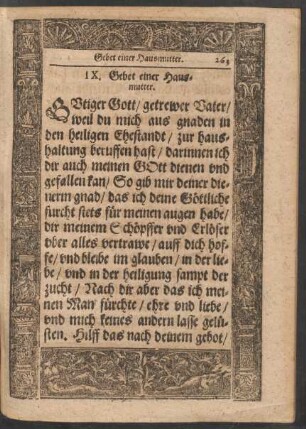 Gebet einer Hausmutter. 263
IX. Gebet einer Haus-
mutter.
GVtiger Gott/ getrewer Vater/
weil du mich aus gnaden in
den heiligen Ehestandt/ zur haus-
haltung beruffen hast/ darinnen ich
dir auch meinen GOtt dienen vnd
gefallen kan/ So gib mir deiner die-
nerin gnad/ das ich deine Göttliche
furcht stets für meinen augen habe/
dir meinem Schöpffer vnd Erlöser
vber alles vertrawe/ auff dich hof-
fe/ vnd bleibe im glauben/ in der lie-
be/ vnd in der heiligung sampt der
zucht/ Nach dir aber das ich mei-
nen Man fürchte/ ehre vnd liebe/
vnd mich keines andern lasse gelü-
sten. Hilff das nach deinem gebot/